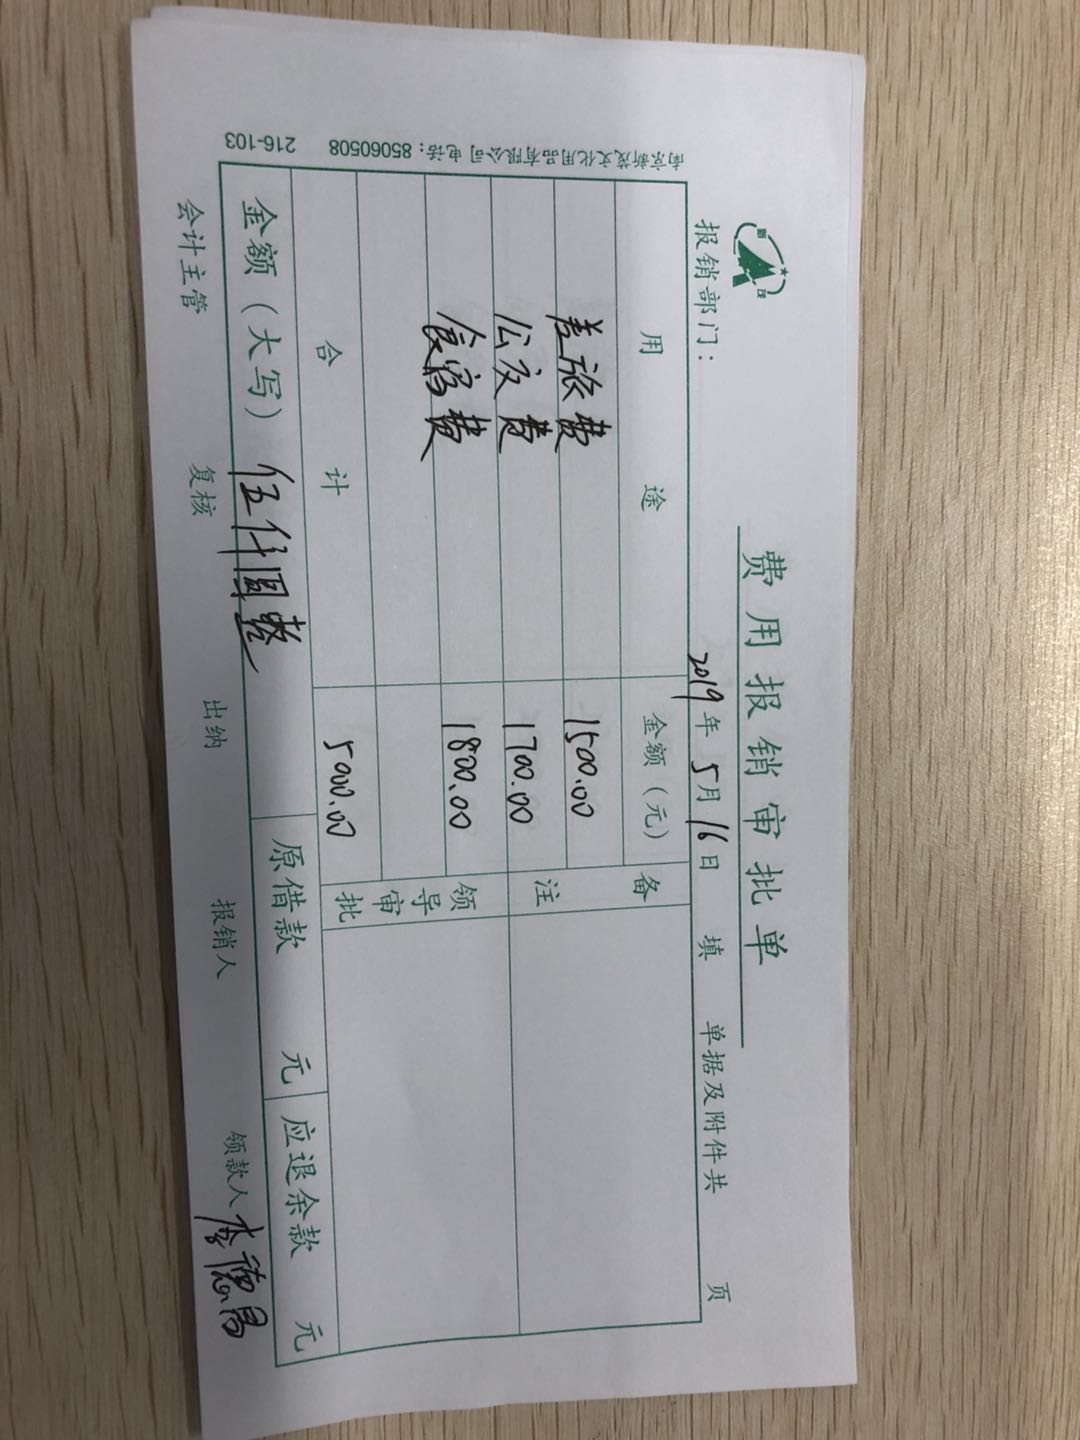 费用报销审批单
报销部门： 2019年5月16日 填 单据及附件共 页
用途 金额（元） 备注
差旅费 1500.00
公交费 1700.00
食宿费 1800.00 领导审批
合计 5000.00
金额（大写） 伍仟圆整 原借款 元 应退余款 元
会计主管 复核 出纳 报销人 领款人 李德昌
南京新茂文化用品有限公司 电话：85060508 216-103